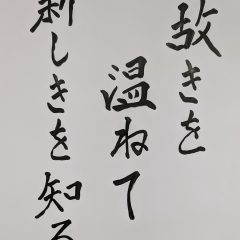 故きを
温ねて
新しきを知る